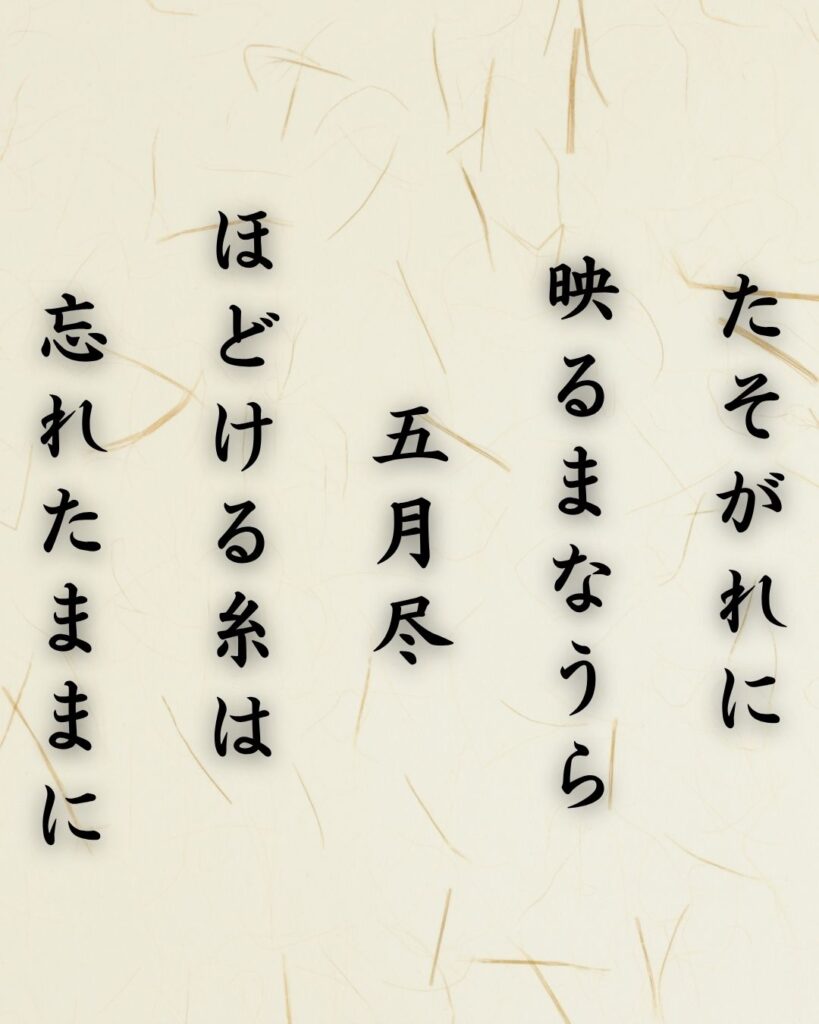 たそがれに
映るまなうら
五月尽
ほどける糸は
忘れたままに